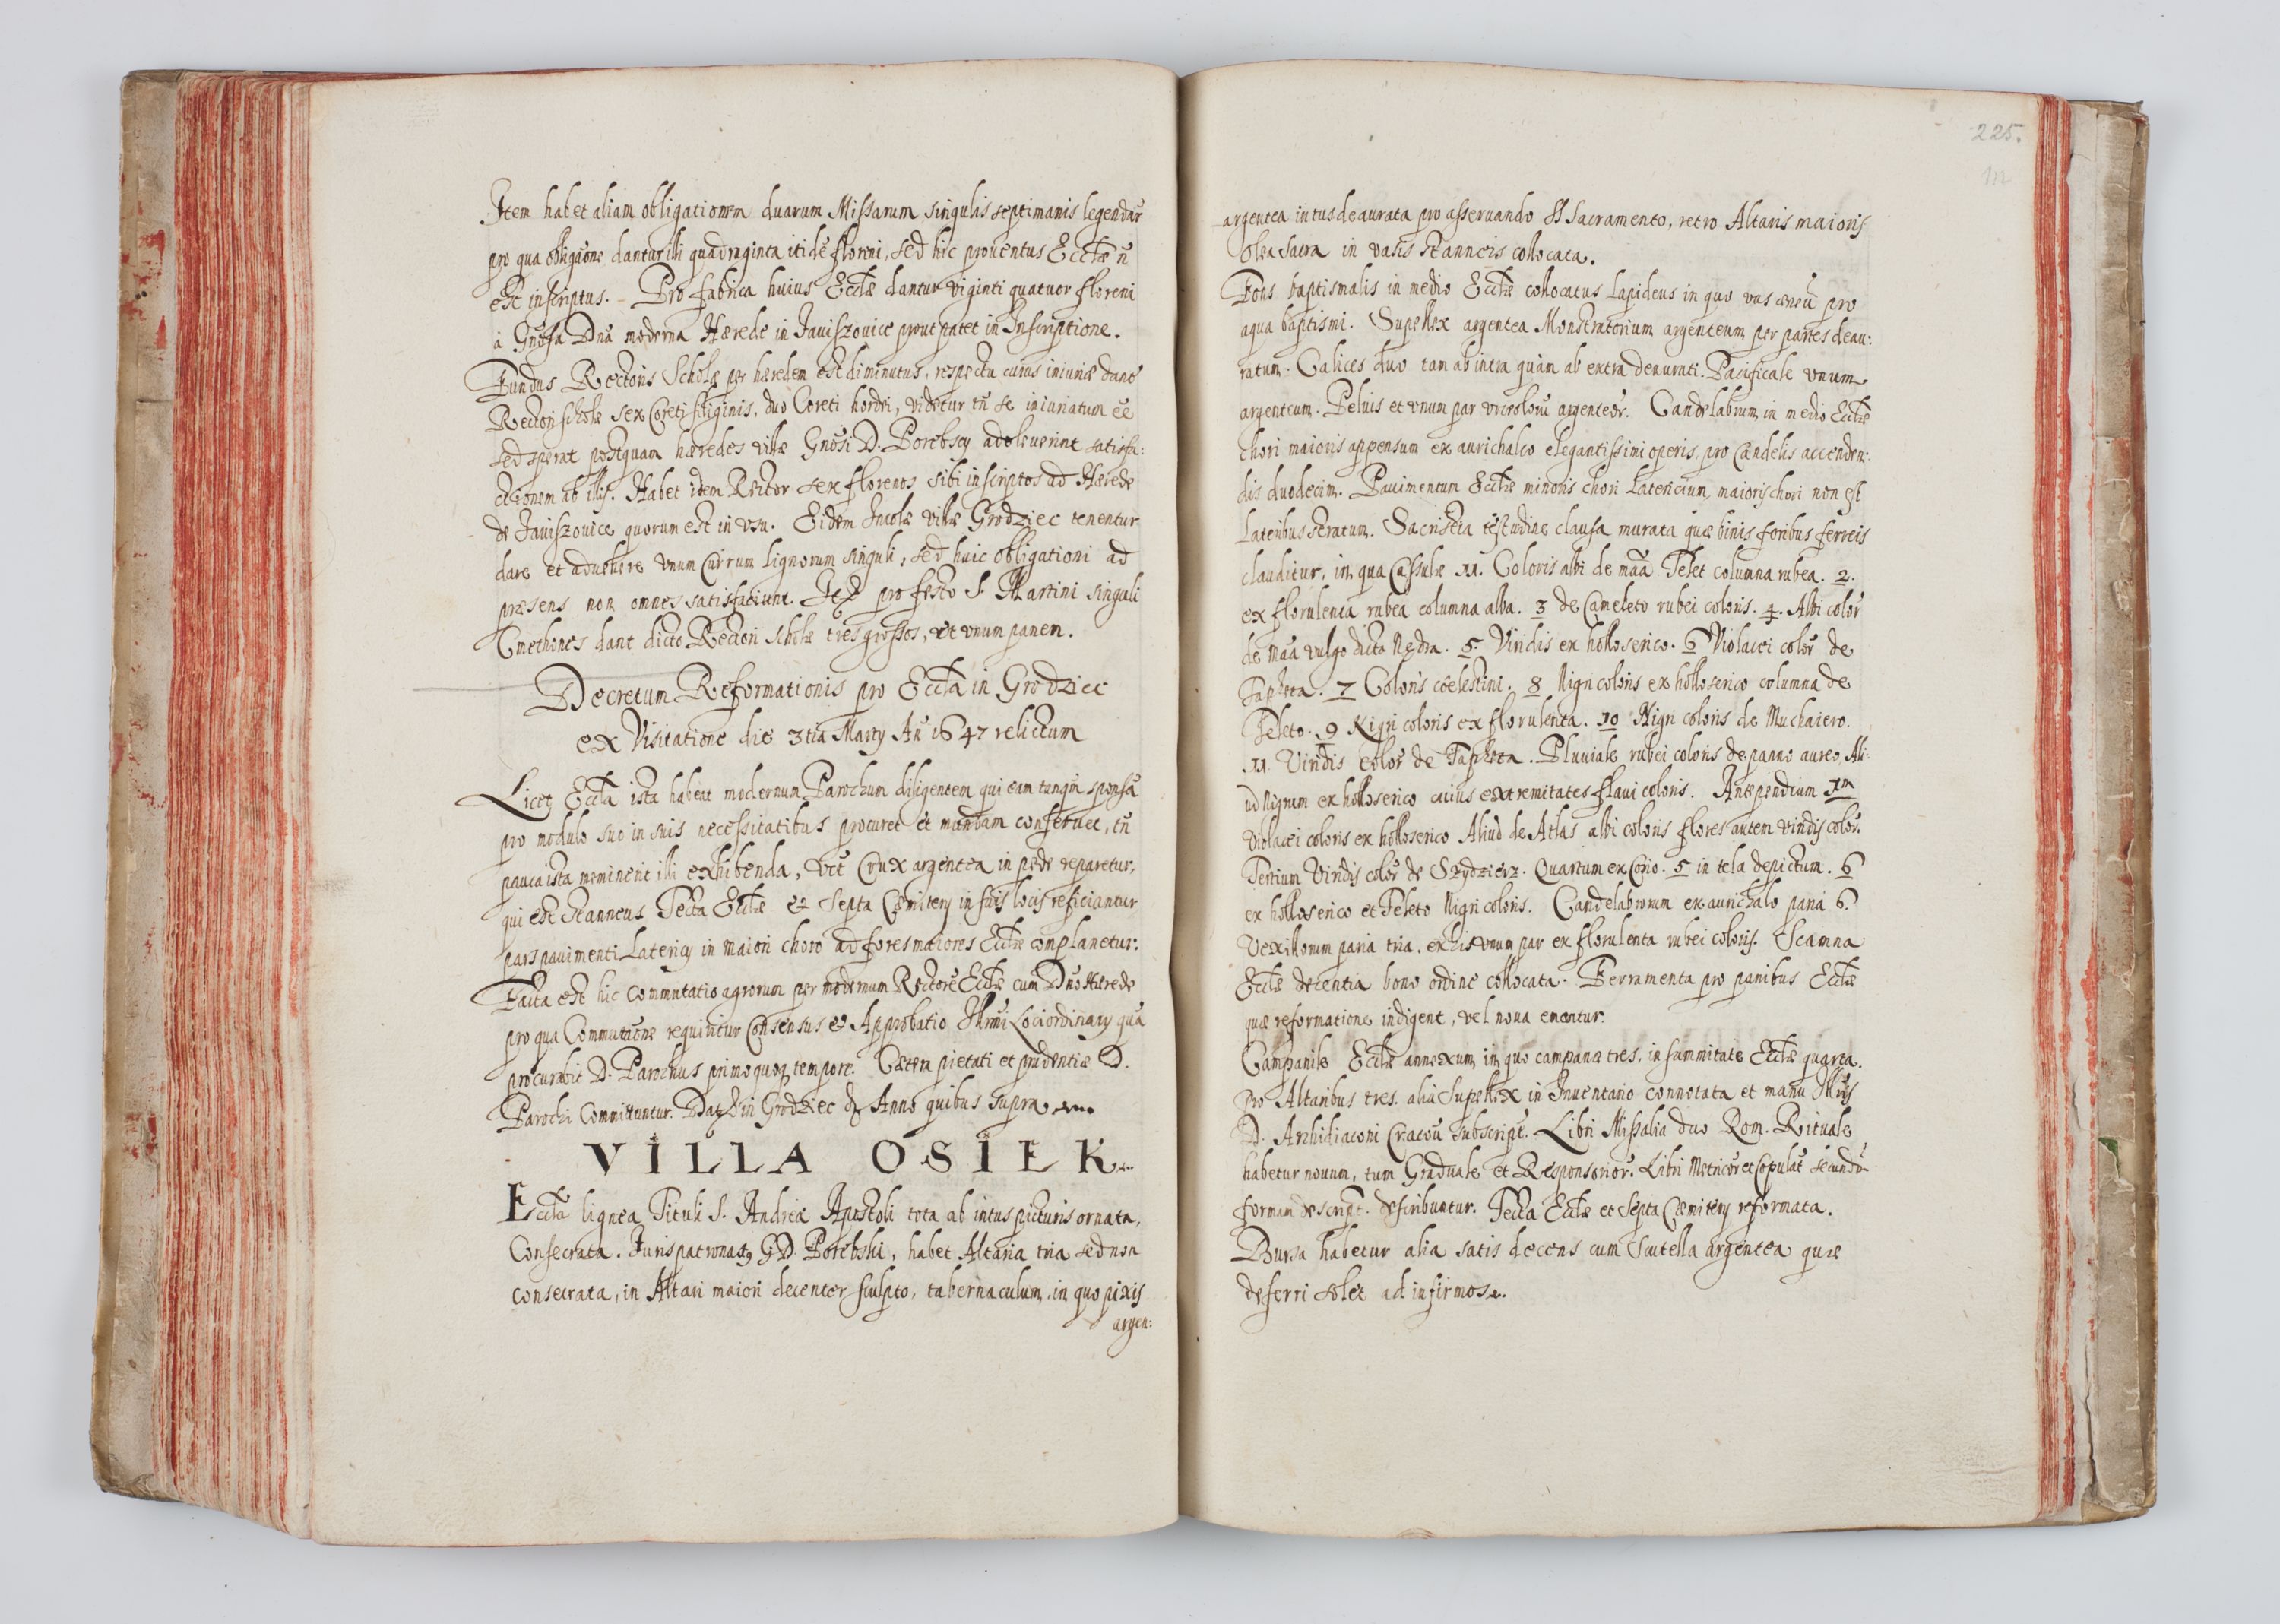 Item habet aliam obligationem duarum Missarum singulis septimanis legendar̃
pro qua obligaõne dantur illi quadraginta itidẽ floreni, sed hic prouentus Ecclæ ñ
est inscriptus. Pro fabrica huius Ecclæ dantur viginti quatuor floreni
à Gnosa Dna moderna Hærede in Jawiszouice prout patet in Inscriptione.
Fundus Rectoris Scholæ per hæredem est diminutus, respectu cuius iniuriæ dant
Rectori scholæ sex Coreti siliginis, duo Coreti hordei, videtur tñ se iniuriatum eẽ
sed sperat postquam hæredes villæ Gnosi D. Porebscy adoleuerint satisfa:
ctionem ab illis. Habet idem Rector sex florenos sibi inscriptos ad Hærede
de Jawiszouice quorum est in vsu. Eidem Incolæ villæ Grodziec tenentur
dare et aduehere vnum Currum lignorum singuli, sed huic obligationi ad
præsens non omnes satisfaciunt. Itẽ pro festo S. Martini singuli
Cmethones dant dicto Rectori scholæ tres grossos, et vnum panem.
Decretum Reformationis pro Eccla in Grodziec
ex Visitatione die 3tia Marty Añ 1647 relictum
Licet Eccla ista habeat modernum Parochum diligentem qui eam tanqm sponsã
pro modulo suo in suis necessitatibus procuret et mundam conseruet, tñ
pauca ista meminerit illi exhibenda, Vt Crux argentea in pede reparetur,
qui est stanneus Tecta Ecclæ et Septa Cœmitery in suis locis reficiantur
pars pauimenti Latericy in maiori choro ad fores maiores Ecclæ complanetur.
Facta est hic commutatio agrorum per modernum Rectorẽ Ecclæ cum Dno Hærede
pro qua Commutaõne requiritur Consensus et Approbatio Illmi Loci ordinary quã
procurabit D. Parochus primo quoq tempore. Cætera pietati et prudentiæ D.
Parochi Committuntur. Dat in Grodziec d Anno quibus supra
VILLA OSIEK
Eccla lignea Tituli S. Andreæ Apostoli tota ab intus picturis ornata,
Consecrata. Iurispatronatq GD. Porębski, habet Altaria tria sed non
consecrata, in Altari maiori decenter sculpto, tabernaculum, in quo pixis
argen:
225.
argentea intus deaurata pro asseruando SS Sacramento, retro Altaris maioris
Olea sacra in vasis stanneis collocata.
Fons baptismalis in medio Ecclæ collocatus Lapideus in quo vas æneũ pro
aqua baptismi. Supellex argentea Monstratorium argenteum per partes deau:
ratum. Calices duo tam ab intra quàm ab extra deaurati. Pacificale vnum
argenteum. Peluis et vnum par vrceolorũ argenteor̃. Candelabrum in medio Ecclæ
Chori maioris appensum ex aurichalco elegantissimi operis, pro Candelis accenden:
dis duodecim. Pauimentum Ecclæ minoris chori Latericium maioris chori non est
Lateribus stratum. Sacristia testudine clausa murata quæ binis foribus ferreis
clauditur, in qua Casulæ 11. Coloris albi de mãa Telet columna rubea. 2.
ex florulenta rubea columna alba. 3 de Cameleto rubei coloris. 4. Albi color̃
de mãa vulgo dicta Nedra. 5. Viridis ex holloserico. 6 Violacei color̃ de
Taphta. 7 Coloris cœlestini. 8 Nigri coloris ex holloserico columna de
Teleto. 9 Nigri coloris ex florulenta. 10 Nigri coloris de Muchaiero.
11. Viridis color̃ de Taphta. Pluuiale rubei coloris de panno aureo, Ali:
ud Nigrum ex holloserico cuius extremitates flaui coloris. Antependium 1m
violacei coloris ex holloserico Aliud de Atlas albi coloris flores autem viridis color̃.
Tertium Viridis color̃ de Szydzierz. Quartum ex Corio. 5 in tela depictum. 6
ex holloserico et Teleto Nigri coloris. Candelabrorum ex aurichalco paria 6.
Vexillorum paria tria, ex his vnum par ex florulenta rubei coloris. Scamna
Ecclæ decentia bono ordine collocata. Ferramenta pro panibus Ecclæ
quæ reformatione indigent, vel noua emantur.
Campanile Ecclæ annexum, in quo campanæ tres, in summitate Ecclæ quarta.
Pro Altaribus tres. alia Supellex in Inuentario connotata et manu Illris
D. Archidiaconi Cracou subscript. Libri Missalia duo Rom. Rituale
habetur nouum, tum Graduale et Responsorior̃. Libri Metricor̃ et Copulat secundũ
formam descript. describuntur. Tecta Ecclæ et Septa Cæmitery reformata.
Bursa habetur alia satis decens cum Scutella argentea quæ
deferri solet ad infirmos.